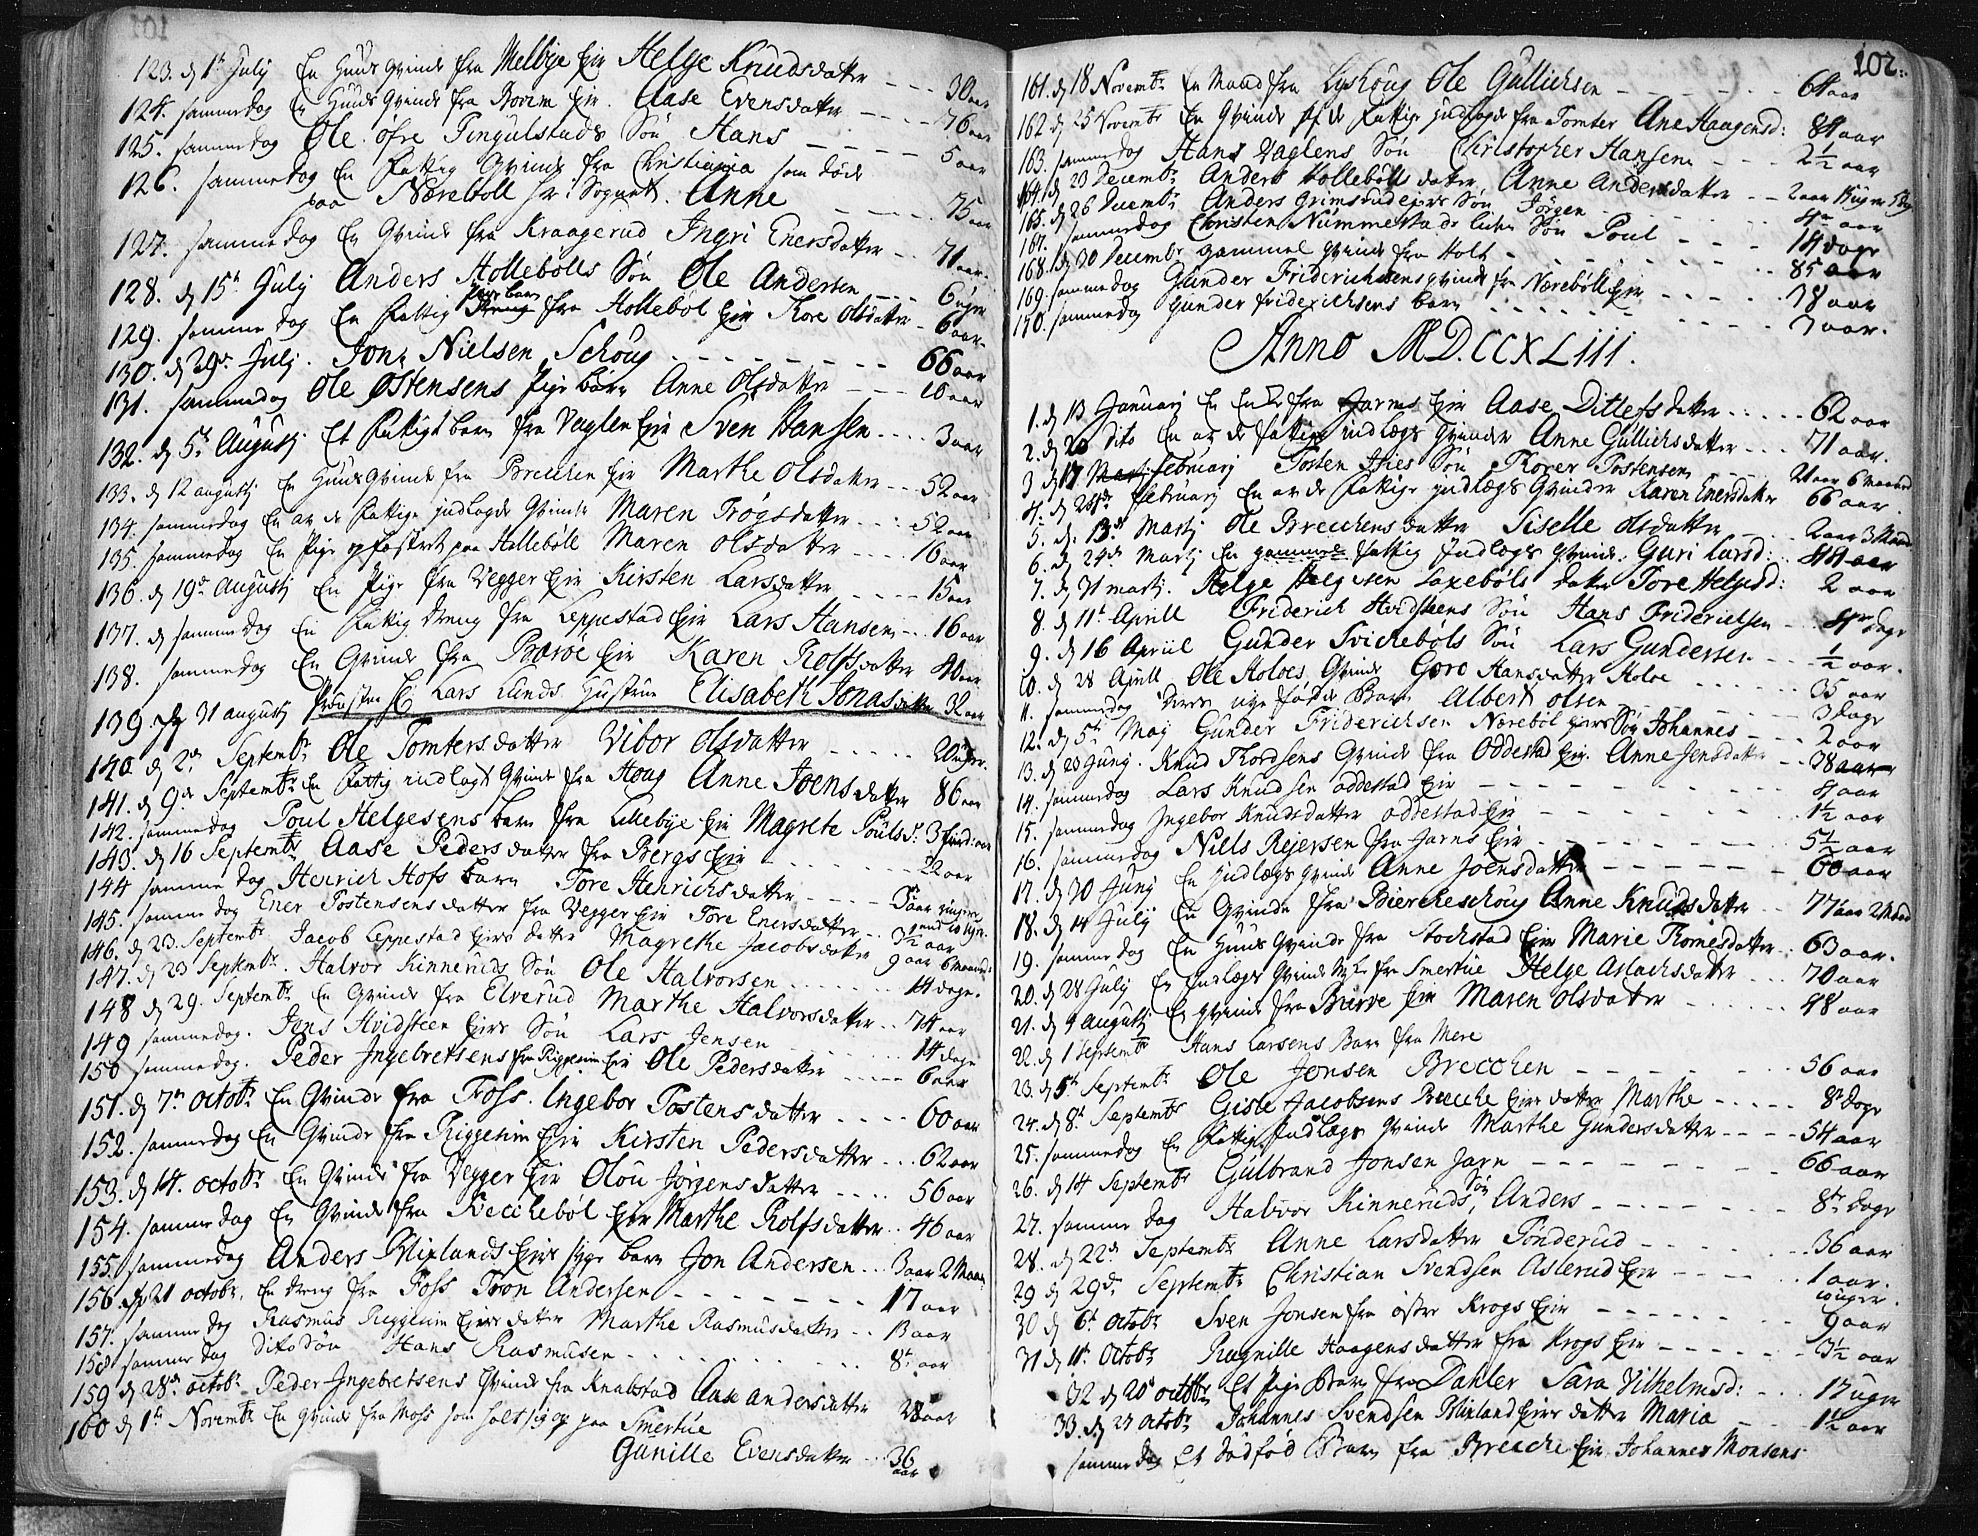 101
123. d 1t July En Huus Qvinde fra Melbye Eir Helge Knudsdatter --- 30 aar
124. samme dag En Huus Qvinde fra Borem Eir. Aase Evensdatter ---- 76 aar
125. samme dag Ole øfre Tingulstads Søn Hans ----- 5 aar
126. samme dag En Fattig Qvinde fra Christiania som døde
paa Nærebøll hr: Sognet. Anne ----- 75 aar
127. samme dag En Qvinde fra Kraagerud Ingri Enersdatter -- 71 aar.
128. d 15t July Anders Hollebølls Søn Ole Andersen --- 6 uger
129. samme dag En Fattig Pigebarn fra Hollebøl Eir Kore Olsdatter - 6 aar
130. d 29de July. Jon Nielsen Schoug -------- 66 aar
131. samme dag Ole Østensens Pige barn Anne Olsdatter --- 10 aar
132. d 5t Augustj Et Fattigt barn fra Vaglen Eir Sven Hansen .... 3 aar
133. d 12 augustj En Huus Qvinde fra Brecchen Eir Marthe Olsdatter --- 52 aar
134. samme dag En av de fattige indlagde Qvinder Maren Trøgsdatter --- 52 aar
135. samme dag En Pige opfostret paa Hollebøll Maren Olsdatter ---- 16 aar
136. d 19de Augustj En Pige fra Vegger Eir Kirsten Larsdatter ---- 15 aar
137. d samme dag En Fattig Dreng fra Leppestad Eir Lars Hansen --- 16 aar
138. samme dag En Qvinde fra Barøe Eir Karen Rolfsdatter 40 aar
139. d 31 augustj Provsten Hr Lars Lunds Hustrue Elisabeth Jonasdatter 32 aar
140 d 2de Septembr Ole Tomters datter Vibor Olsdatter ----- 20 uger.
141. d 9de Septembr En Fattig indlagt Qvinde fra Houg Anne Joensdatter 86 aar
142. samme dag Poul Helgesens barn fra Lillebye Eir Magrete Poulsd: 3 fierd: aar
143. d 16 Septembr Aase Pedersdatter fra Bergs Eir ------ 22 aar
144 samme dag Henrich Hofs barn Tore Henrichsdatter ----- 5 aar
145. samme dag Ener Tostensens datter fra Vegger Eir Tore Enersdatter -- 3½ aar
146. d 23. Septembr Jacob Leppestad Eiers datter Magrethe Jacobsdatter 9 aar 6 maaned
147. d 23 Septembr. Halvor Kinneruds Søn Ole Halvorsen ...... 14 dage.
148 d 29. Septembr En Qvinde fra Elverud Marthe Halvorsdatter .. 74 aar
149 samme dag. Jens Hvidsteen Eiers Søn Lars Jensen ...... 14 dage
150 samme dag. Peder Ingebretsens fra Riggenim Eir Ole Pedersdatter ---- 6 aar
151. d 7de Octobr En Qvinde fra Tross. Ingebor Tostensdatter ---- 60 aar
152. samme dag En Qvinde fra Riggenim Eir Kirsten Pedersdatter ... 62 aar
153. d 14. octobr En Qvinde fra Vegger Eir Olou Jørgensdatter .... 56 aar
154. samme dag En Qvinde fra Svecchebøl Eir Marthe Rolfsdatter .. 46 aar
155. samme dag Anders Mixlands Eiers barn Jon Andersen ... 3 aar 2 Maan
156. d 21 octobr. En dreng fra Foss Tron Andersen ------- 17 aar
157. samme dag Rasmus Riggenim Eiers datter Marthe Rasmusdatter .. 13 aar
158 samme dag dito Søn Hans Rasmusen ........ 8t aar
159 d 28de octobr. Peder Ingebretsens Qvinde fra Knabstad Ane andersdatter 28 aar
160 d 1t Novembr En Qvinde fra Moss som holt sig op paa Smertue
Gunille Evensdatter ... 36 aar
102:
161. d 18 Novembr En Mand fra Lyshoug Ole Gullichsen ------ 64 aar
162 d 25 Novembr En Qvinde af de Fattige indlagde fra Tomter Ane Haagensd: 84 aar
163. samme dag Hans Vaglens Søn Christopher Hansen -- 2½ aar
164. d 23 Decembr Anders Hollebølls datter, Anne Andersdatter --
165. d 26 Decembr Anders Grimsrudeiers Søn Jørgen ----- 4 aar
167. samme dag Christen Nummestads liden Søn Poul --- 14 dage
168. d 30 Decembr gammel Qvinde fra Holt ------ 85 aar
169. samme dag Gunder Friderichsens qvinde fra Nærebøll Eir ---- 38 aar
170. samme dag Gunder friderichsens barn ------- 7 aar.
Anno MD.CCXLIII.
1. d 13 Januarj En Enke fra Jarns Eir Aase Ditlefsdatter ..... 62 aar
2. d 20 dito En av de fattige indlagde Qvinder Anne Gullichsdatter --- 71 aar.
3 d 17 Februarj Tosten Hies Søn Torer Tostensen -- 2 aar 6 maaned
4. d 24de februarj En av de Fattige indlagde Qvinder Karen Enersdatter 66 aar.
5. d. 13de Martj Ole Brecchens datter Siselle Olsdatter -- 2 aar 3 Maan
6. d 24de Martj En gammel fattig Indlagt Qvinde. Guri Larsd: 44 aar
7. d 31 martj. Helge Helgesen Saxebøls datter Tore Helgesd: 2 aar
8. d 11t Aprill Friderich Hvidsteens Søn Hans Friderichsen -- 4re dage
9. d 16 Apriil Gunder Svichebøls Søn Lars Gundersen .... ½ aar.
10. d 28 Aprill Ole Holøes Qvinde Goro Hansdatter Holøe ----- 35 aar
11. samme dag Deres nye fødde Barn Albert Olsen ------ 3 dage
12. d 5t May Gunder Friderichsen Nærebøl Eiers Søn Johannes --- 2 aar
13. d 20 Junij. Knud Thordsens Qvinde fra Oddestad Eir. Anne Jensdatter -- 38 aar
14. samme dag Lars Knudsen oddestad Eir ------- 4 aar
15. samme dag Ingebor Knudsdatter oddestad Eir ------ 1½ aar
16. samme dag Niels Rejersen fra Jarns Eir ------- 5½ aar
17. d 30 Junij En Indlagt Qvinde Anne Joensdatter ------ 60 aar
18. d 14 Julij En Qvinde fra Biercheschoug Anne Knudsdatter -- 77 aar 2 Maand
19. samme dag En Huus Qvinde fra Stochstad Eir Marie Tomesdatter .. 63 aar.
20. d 28 July En Indlagt Qvinde fra Smertue Helge Aslachsdatter ---- 70 aar
21. d 4 augustj En qvinde fra Bierve Eir Maren Olsdatter ---- 48 aar
22. d 1 Septembr Hans Larsens Barn fra Mere
23. d 5t Septembr Ole Jonsen Brecchen ------- 56 aar
24. d 8t Septembr Giste Jacobsens Brecche Eiers datter Marthe ----- 8t dage
25. samme dag En Fattig Indlagt Qvinde Marthe Gundersdatter ---- 54 aar
26. d 14 Septembr Gulbrand Jonsen Jarn ------- 66 aar
27. samme dag Halvor Kinneruds Søn, Anders ------ 8te dage
28. d 22de Septembr Anne Larsdatter Tonderud ------ 36 aar
29 d 29de Septembr Christian Svendsen Aslerud Eir ----- 1 aar. 10 uger.
30 d 6t octobr Sven Jonsen fra østre Krogs Eir ------- 9 aar
31 d 11t Octobr Ragnille Haagensdatter fra Krogs Eir ------ 3½ aar
32 d 20 octobr Et Pige Barn fra Dahler Sara Vilhelmsd: ... 17 uger
33. d 27 octobr Johannes Svendsen Mixland Eiers datter Maria -- 1½ aar
samme dag Et dødfød Barn fra Brecche Eir Johannes Monsens